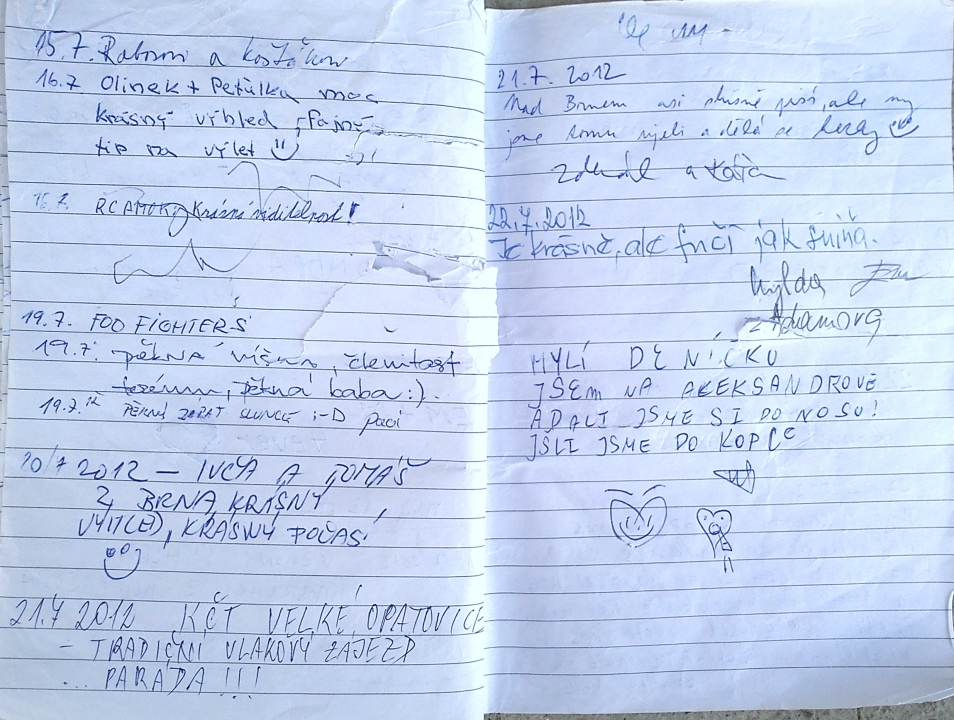 15.7. a
16.7 Olinek + Petulka moc
krásný výhled, fajný
tip na výlet
16.7. Krásná viditelnost!
19.7. FOO FIGHTERS
19.7. pěkná členitost
terénu, pěkná baba :).
19.7. PĚKNÝ ZÁPAD SLUNCE :-D
20/7 2012 – IVČA A TOMÁŠ
Z BRNA, KRÁSNÝ
KRÁSNÝ POČASÍ
21.7 2012 KČT VELKÉ OPATOVICE
– TRADIČNÍ VLAKOVÝ ZÁJEZD
... PARÁDA !!!
21.7. 2012
Nad Brnem asi slušně prší, ale my
jsme tomu ujeli a dělá se hezky
a Káťa
22.7.2012
Je krásně, ale fučí jak sviňa.
z Adamova
MYLÍ DENÍČKU
JSEM NA ALEKSANDROVĚ
A DALI JSME SI DO NOSU!
JSLI JSME DO KOPCE